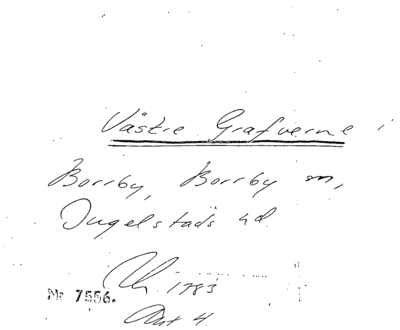 Västre Grafverne i
Borrby, Borrby sn,
Ingelstads hd
1783
Nr 7556.
Akt 4